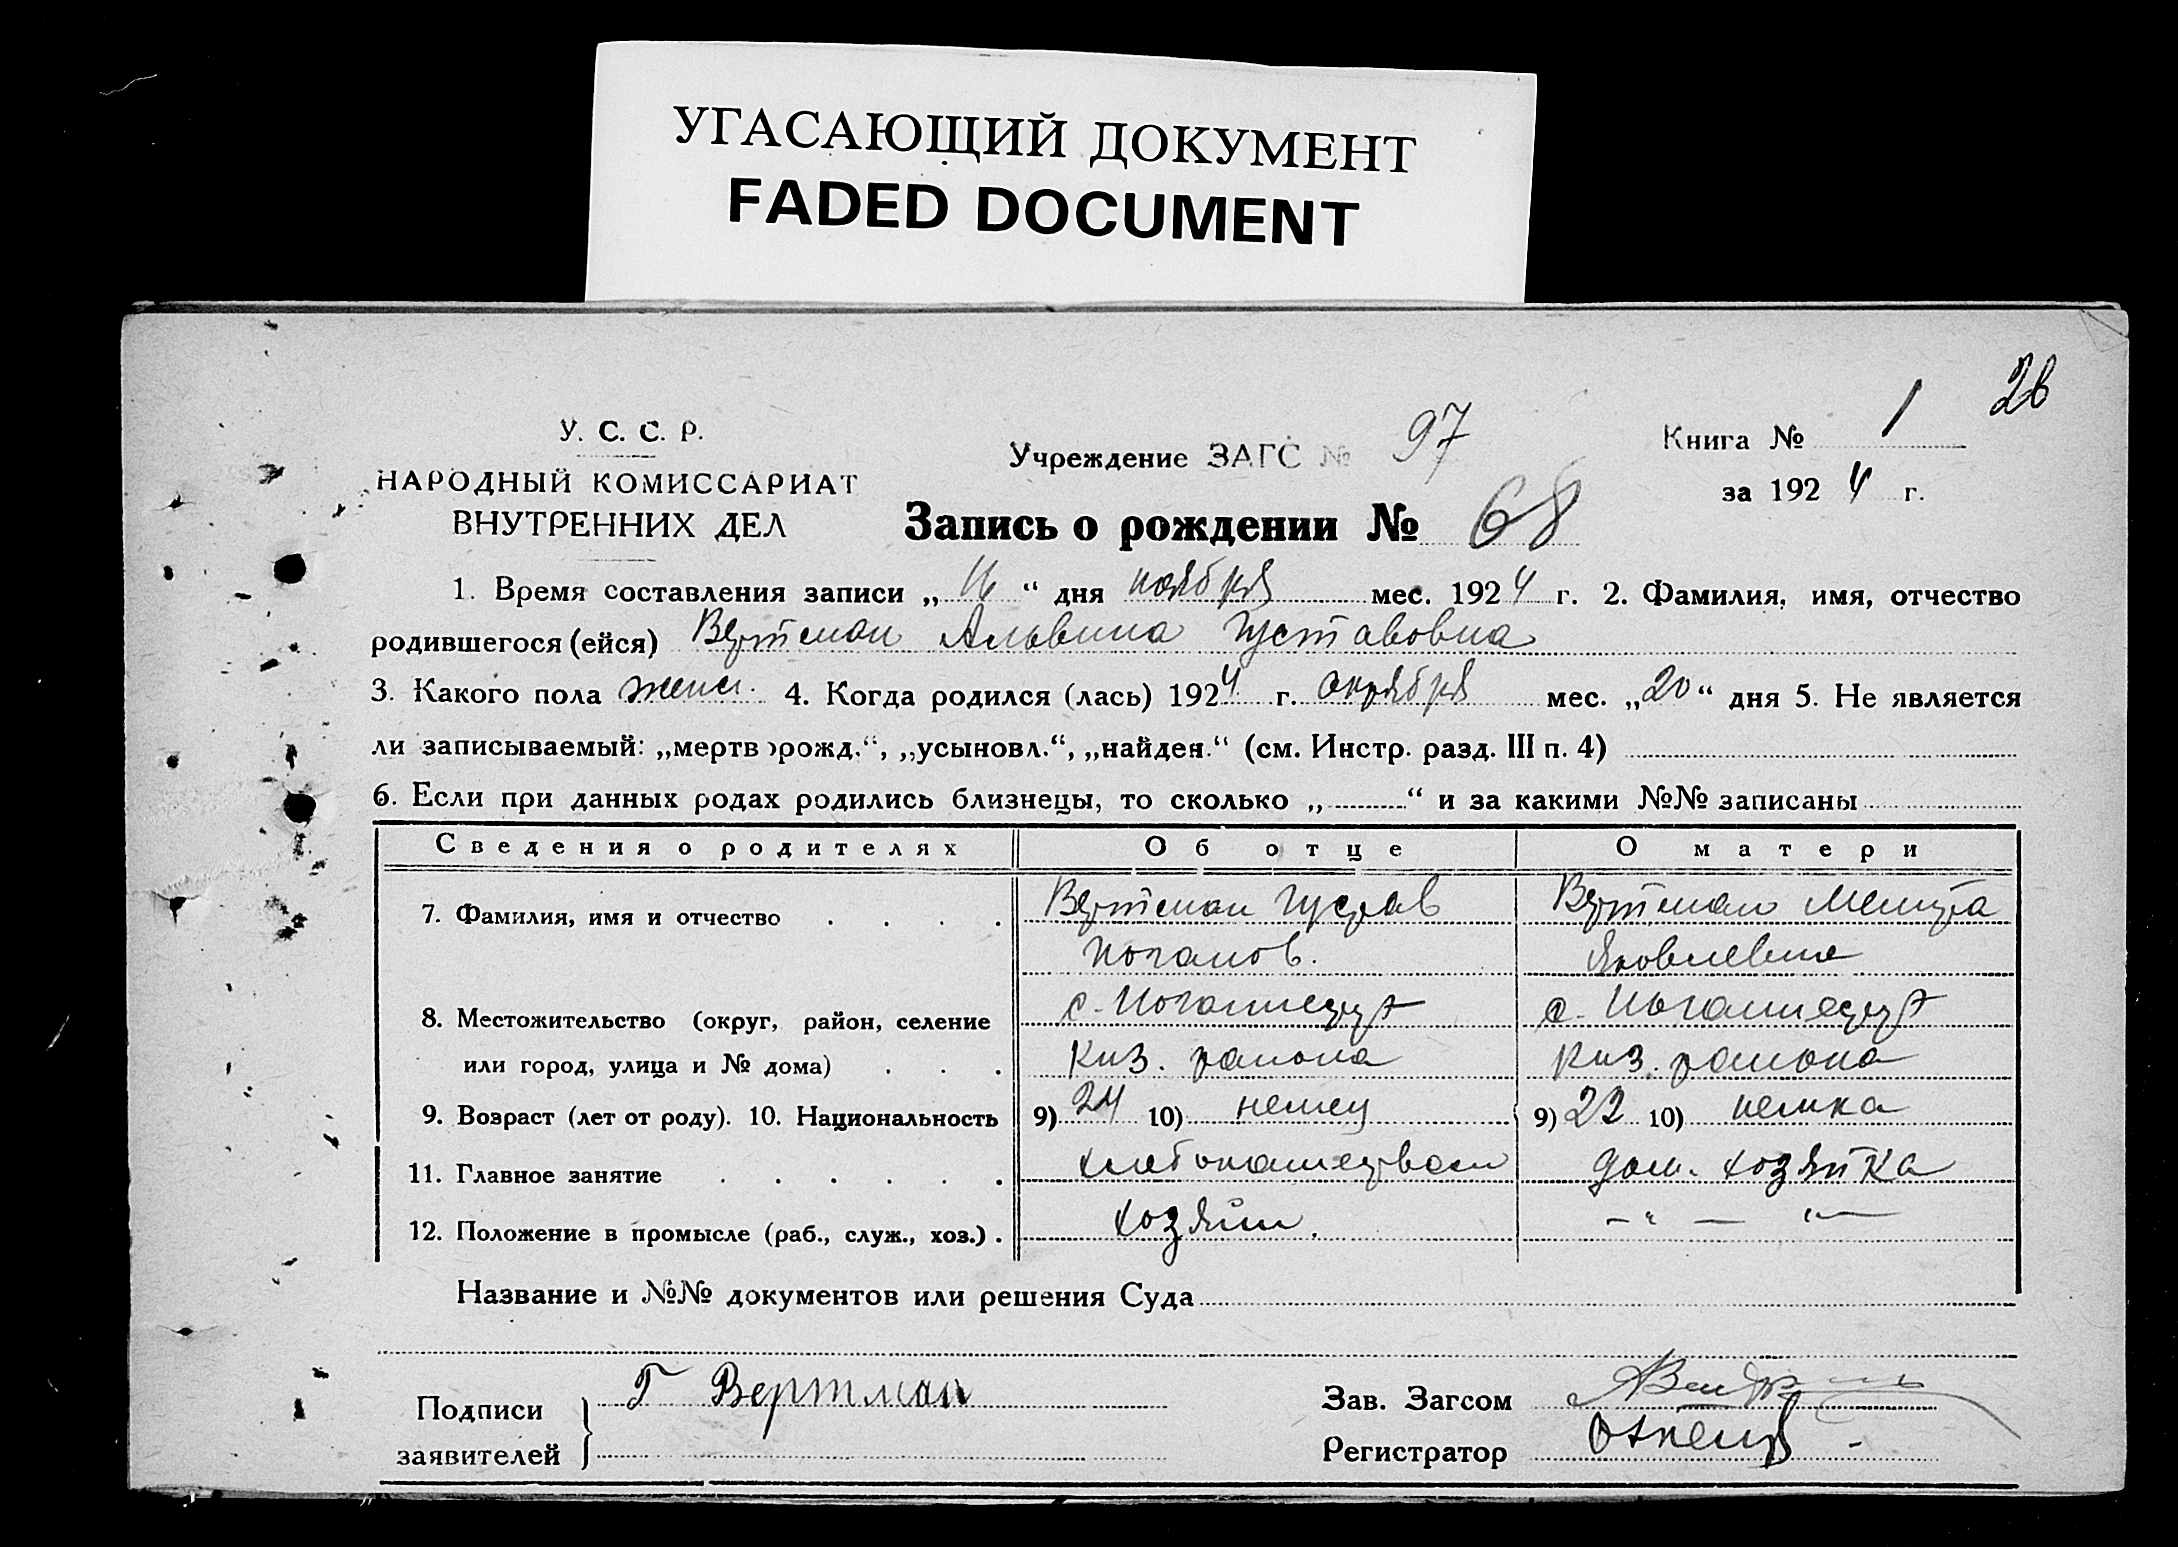 УГАСАЮЩИЙ ДОКУМЕНТ
FADED DOCUMENT
26
У. С. С. Р.
НАРОДНЫЙ КОМИССАРИАТ
ВНУТРЕННИХ ДЕЛ
Учреждение ЗАГС № 97
Книга № 1
за 1924 г.
Запись о рождении № 68
1. Время составления записи „ “ дня ноября мес. 1924 г. 2. Фамилия, имя, отчество
родившегося (ейся) Вертман Альвина Густавовна
3. Какого пола женск. 4. Когда родился (лась) 1924 г. октября мес. „20“ дня 5. Не является
ли записываемый: „мертворожд.“, „усыновл.“, „найден.“ (см. Инстр. разд. III п. 4)
6. Если при данных родах родились близнецы, то сколько „ “ и за какими №№ записаны
Сведения о родителях Об отце О матери
7. Фамилия, имя и отчество Вертман Густав Вертман
Иоганов. Яковлевна
8. Местожительство (округ, район, селение с. с.
или город, улица и № дома) района района
9. Возраст (лет от роду). 10. Национальность 9) 24 10) немец 9) 22 10) немка
11. Главное занятие хлебопашество дом. хозяйка
12. Положение в промысле (раб., служ., хоз.) хозяин. —„— „—
Название и №№ документов или решения Суда
Подписи заявителей Г Вертман
Зав. Загсом
Регистратор